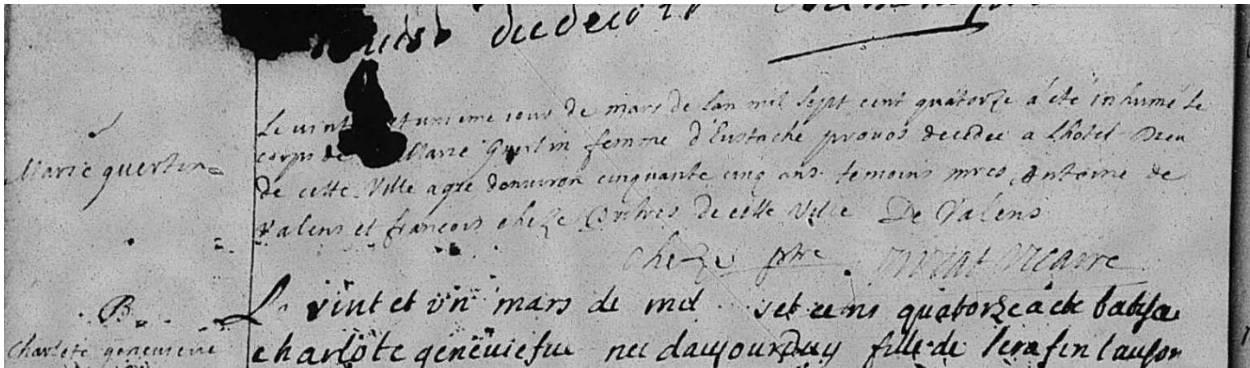 Marie guertin
Le vint et unieme jour de mars de lan mil sept cent quatorze a été inhumé le
corps de Marie Guertin femme d'Eustache prouos decedee a Lhotel Dieu
de cette Ville agée denuiron cinquante cinq ans temoins mres Antoine de
Valens et francois cheze Prtres de cette Ville De Valens
cheze ptre vicaire
B
Charlote geneuieue
Le vint et un mars de mil set cens quatorze a ete batise
charlote geneuiefue nee daujourduy fille de serafin lauson